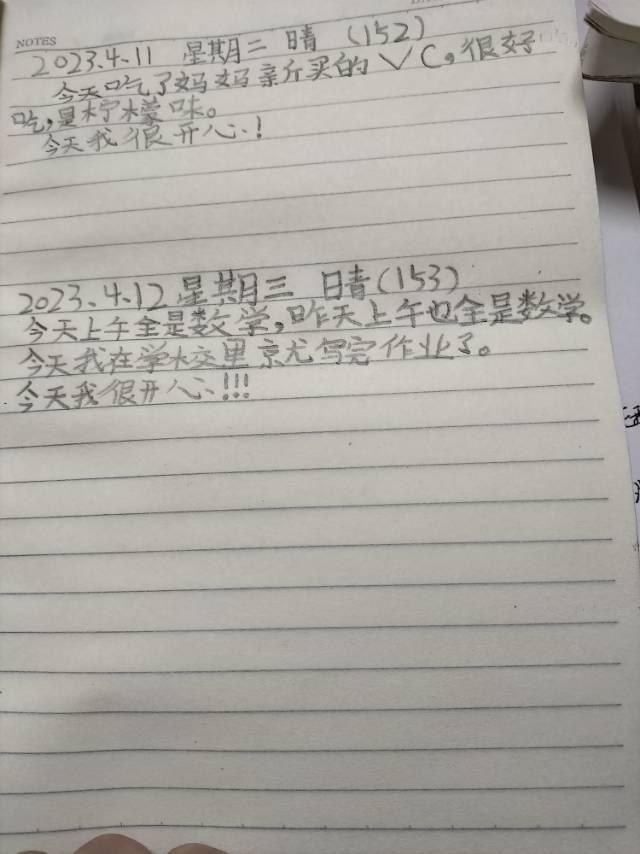 NOTES
2023.4.11 星期二 晴 (152)
今天吃了妈妈亲斤买的VC。很好
吃,是柠檬味。
今天我很开心!
2023.4.12 星期三 晴(153)
今天上午全是数学,昨天上午也全是数学。
今天我在学校里就写完作业了。
今天我很开心!!!